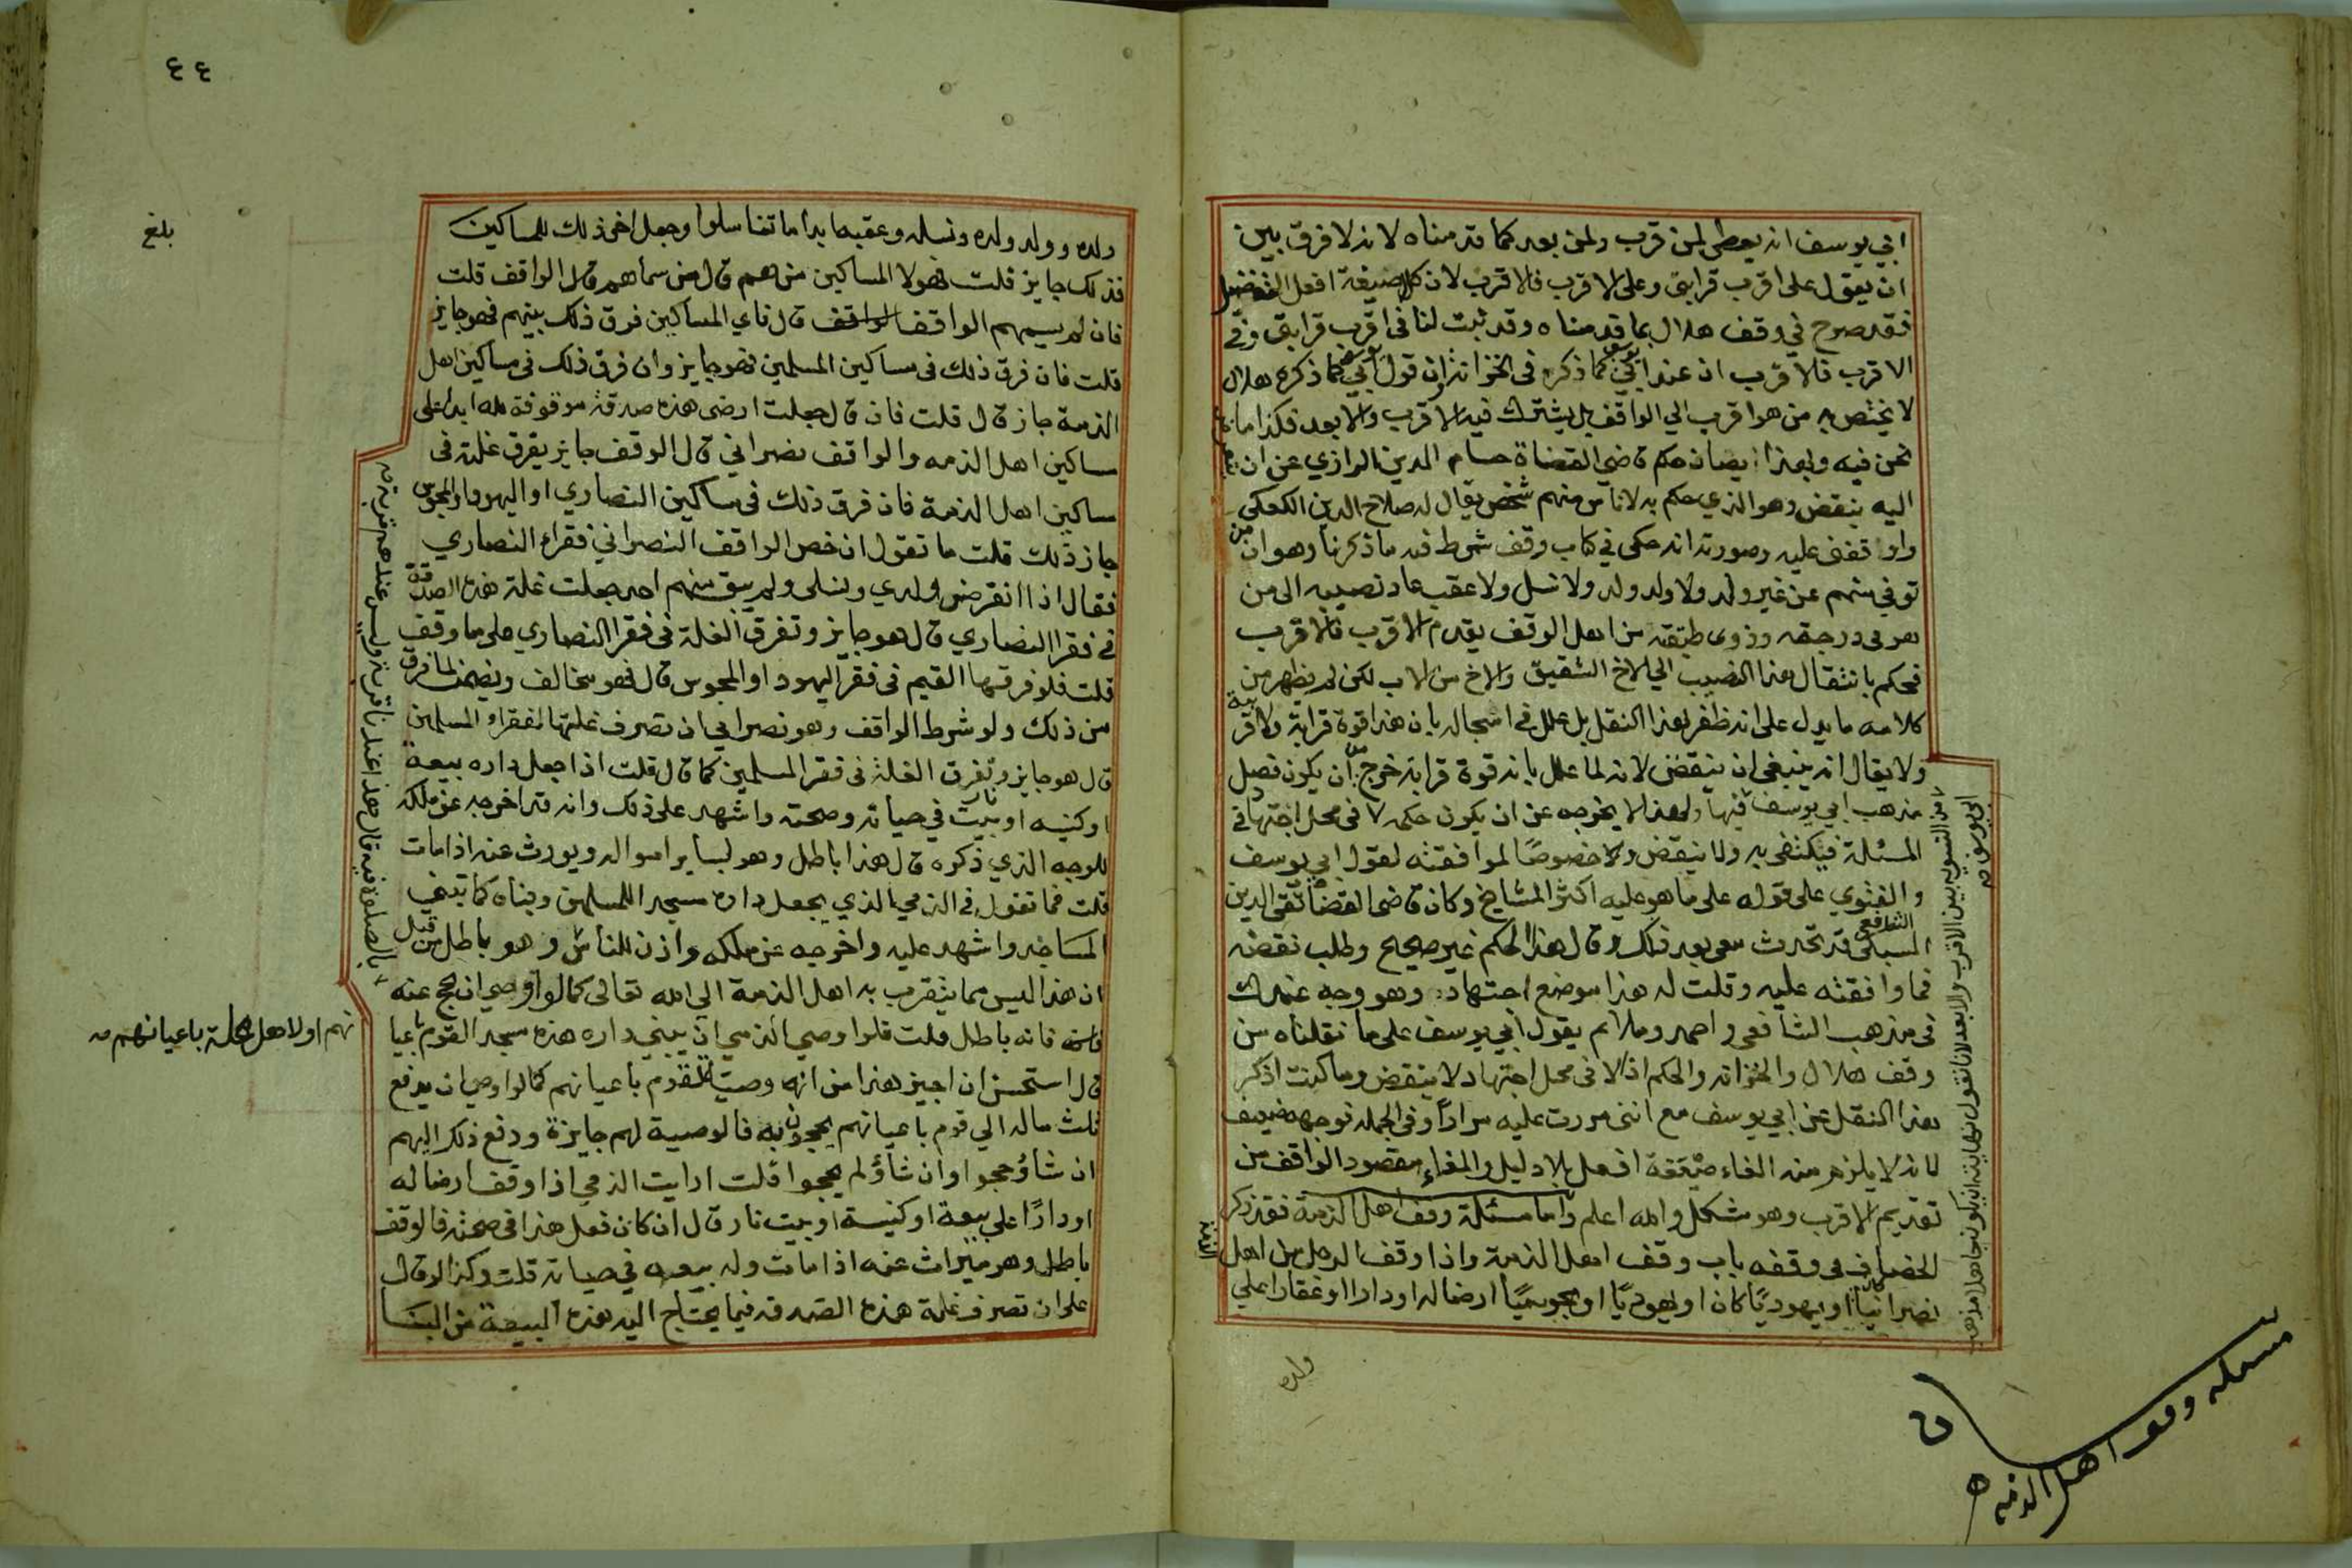 ابي يوسف انه يعطى لمن قرب ولمن بعد كما قدمناه لانه لا فرق بين
ان يقول على اقرب قرابتي وعلى الاقرب فالاقرب لان كل صيغة افعل التفضيل
فقد صرح في وقف هلال بما قدمناه وقد ثبت لنا فى اقرب قرابتي وفي
الاقرب فالاقرب ان عند ابي يوسف كما ذكره فى الخزانة ان قول ابي يوسف كما ذكره هلال
لا يختص به من هو اقرب الي الواقف بل يشترك فيه الاقرب والابعد فكذا ما
نحن فيه وبهذا ايضا حكم قاضي القضاة حسام الدين الرازي عن ان
اليه ينقض وهو الذي حكم به لاناس منهم شخص يقال له صلاح الدين الكعكي
واوقفني عليه وصورته انه حكى في كتاب وقف شرط فيه ما ذكرنا وهو ان من
توفي منهم عن غير ولد ولا ولد ولد ولا نسل ولا عقب عاد نصيبه الى من
هو فى درجته وذوى طبقته من اهل الوقف يقدم الاقرب فالاقرب
فحكم بانتقال هذا النصيب الي الاخ الشقيق والاخ من الاب لكن لم يظهر من
كلامه ما يدل على انه ظفر بهذا النقل بل علل في اسجاله بان هذا قوة قرابة ولا قرابة
ولا يقال انه ينبغي ان ينقض لانه لما علل بانه قوة قرابة خرج عن ان يكون فصل
مذهب ابي يوسف فيها ولهذا لا يخرجه عن ان يكون حكمه فى محل اجتهاد في
المسئلة فيكتفى به ولا ينقض ولا خصوصًا لموافقته لقول ابي يوسف
والفتوي على قوله على ما هو عليه اكثر المشايخ وكان قاضى القضاة تقى الدين
السبكي الشافعي قد تحدث معى بعد ذلك وقال هذا الحكم غير صحيح وطلب نقضه
فما وافقته عليه وقلت له هذا موضع اجتهاد وهو وجه عندك
فى مذهب الشافعى واحمد وملائم يقول ابي يوسف على ما نقلناه من
وقف هلال والخزانه والحكم اذا لاقى محل اجتهاد لا ينقض وما كنت اذكر
هذا النقل عن ابي يوسف مع اننى مررت عليه مرارًا وفى الجملة توجهه ضعيف
لانه لا يلزم منه الغاء صيغة افعل بلا دليل والغاء مقصود الواقف من
تقديم الاقرب وهو مشكل والله اعلم واما مسئلة وقف اهل الذمة فقد ذكر
الخصاف فى وقفه باب وقف اهل الذمة واذا وقف الرجل من اهل الذمة
نصرانيا كان او يهوديًا كان او يهوديًا او مجوسيًا ارضا له او دارا او عقارا على
ابي يوسف
من التسوية بين الاقرب والابعد لانا نقول نهايته ان يكون جاهلا مذهب
ولده
مسئلة وقف اهل الذمه
ن
٤٤
بلغ
ولده وولد ولده ونسله وعقبه ابدا ما تناسلوا وجعل اخر ذلك للمساكين
فذلك جايز قلت فهولا المساكين من هم قال من سماهم قال الواقف قلت
فان لم يسمهم الواقف الواقف قال فاي المساكين فرق ذلك بينهم فهو جايز
قلت فان فرق ذلك فى مساكين المسلمين فهو جايز وان فرق ذلك فى مساكين اهل
الذمة جاز قال قلت فان قال جعلت ارضى هذه صدقة موقوفة لله ابدا على
مساكين اهل الذمه والواقف نصراني قال الوقف جايز يفرق غلته فى
مساكين اهل الذمة فان فرق ذلك فى مساكين النصاري او اليهود او المجوس
جاز ذلك قلت ما تقول ان خص الواقف النصراني فقراء النصاري
فقال اذا انقرض ولدي ونسلى ولم يبق منهم احد جعلت غلة هذه الصدقة
في فقرا النصاري قال هو جايز وتفرق الغلة فى فقرا النصاري على ما وقف
قلت فلو فرقها القيم فى فقرا اليهود او المجوس قال فهو مخالف ويضمن لما فرق
من ذلك ولو شرط الواقف وهو نصراني ان تصرف غلتها لفقراء المسلمين
قال هو جايز وتفرق الغلة فى فقرا المسلمين كما قال قلت اذا جعل داره بيعة
او كنيسه او بيت نار في حياته وصحته واشهد على ذلك وانه قد اخرجه عن ملكه
للوجه الذي ذكره قال هذا باطل وهو لساير امواله ويورث عنه اذا مات
قلت فما تقول فى الذمي الذي يجعل داره مسجدا للمسلمين وبناه كما تبنى
المساجد واشهد عليه واخرجه عن ملكه واذن للناس وهو باطل من قبل
ان هذا ليس مما يتقرب به اهل الذمة الي الله تعالى كما لو اوصي ان يحج عنه
فانه باطل قلت فلو اوصي الذمي ان يبني داره هذه مسجدا لقوم باعيا
قال استحسن ان اجيز هذا من انه وصية لقوم باعيانهم كما لو اوصي ان يدفع
ثلث ماله الي قوم باعيانهم يحجون به فالوصية لهم جايزة ودفع ذلك اليهم
ان شاؤ حجوا وان شاؤ لم يحجوا قلت ارايت الذمي اذا وقف ارضا له
او دارًا على بيعة او كنيسة او بيت نار قال ان كان فعل هذا فى صحته فالوقف
باطل وهو ميراث عنه اذا مات وله بيعه في حياته قلت وكذا لو قال
على ان تصرف غلة هذه الصدقه فيما يحتاج اليه هذه البيعة من البنا
بالصلوة فيه قال هذا عندنا قربة وليس عندهم قربة صح
نهم او لاهل محلة باعيانهم صح